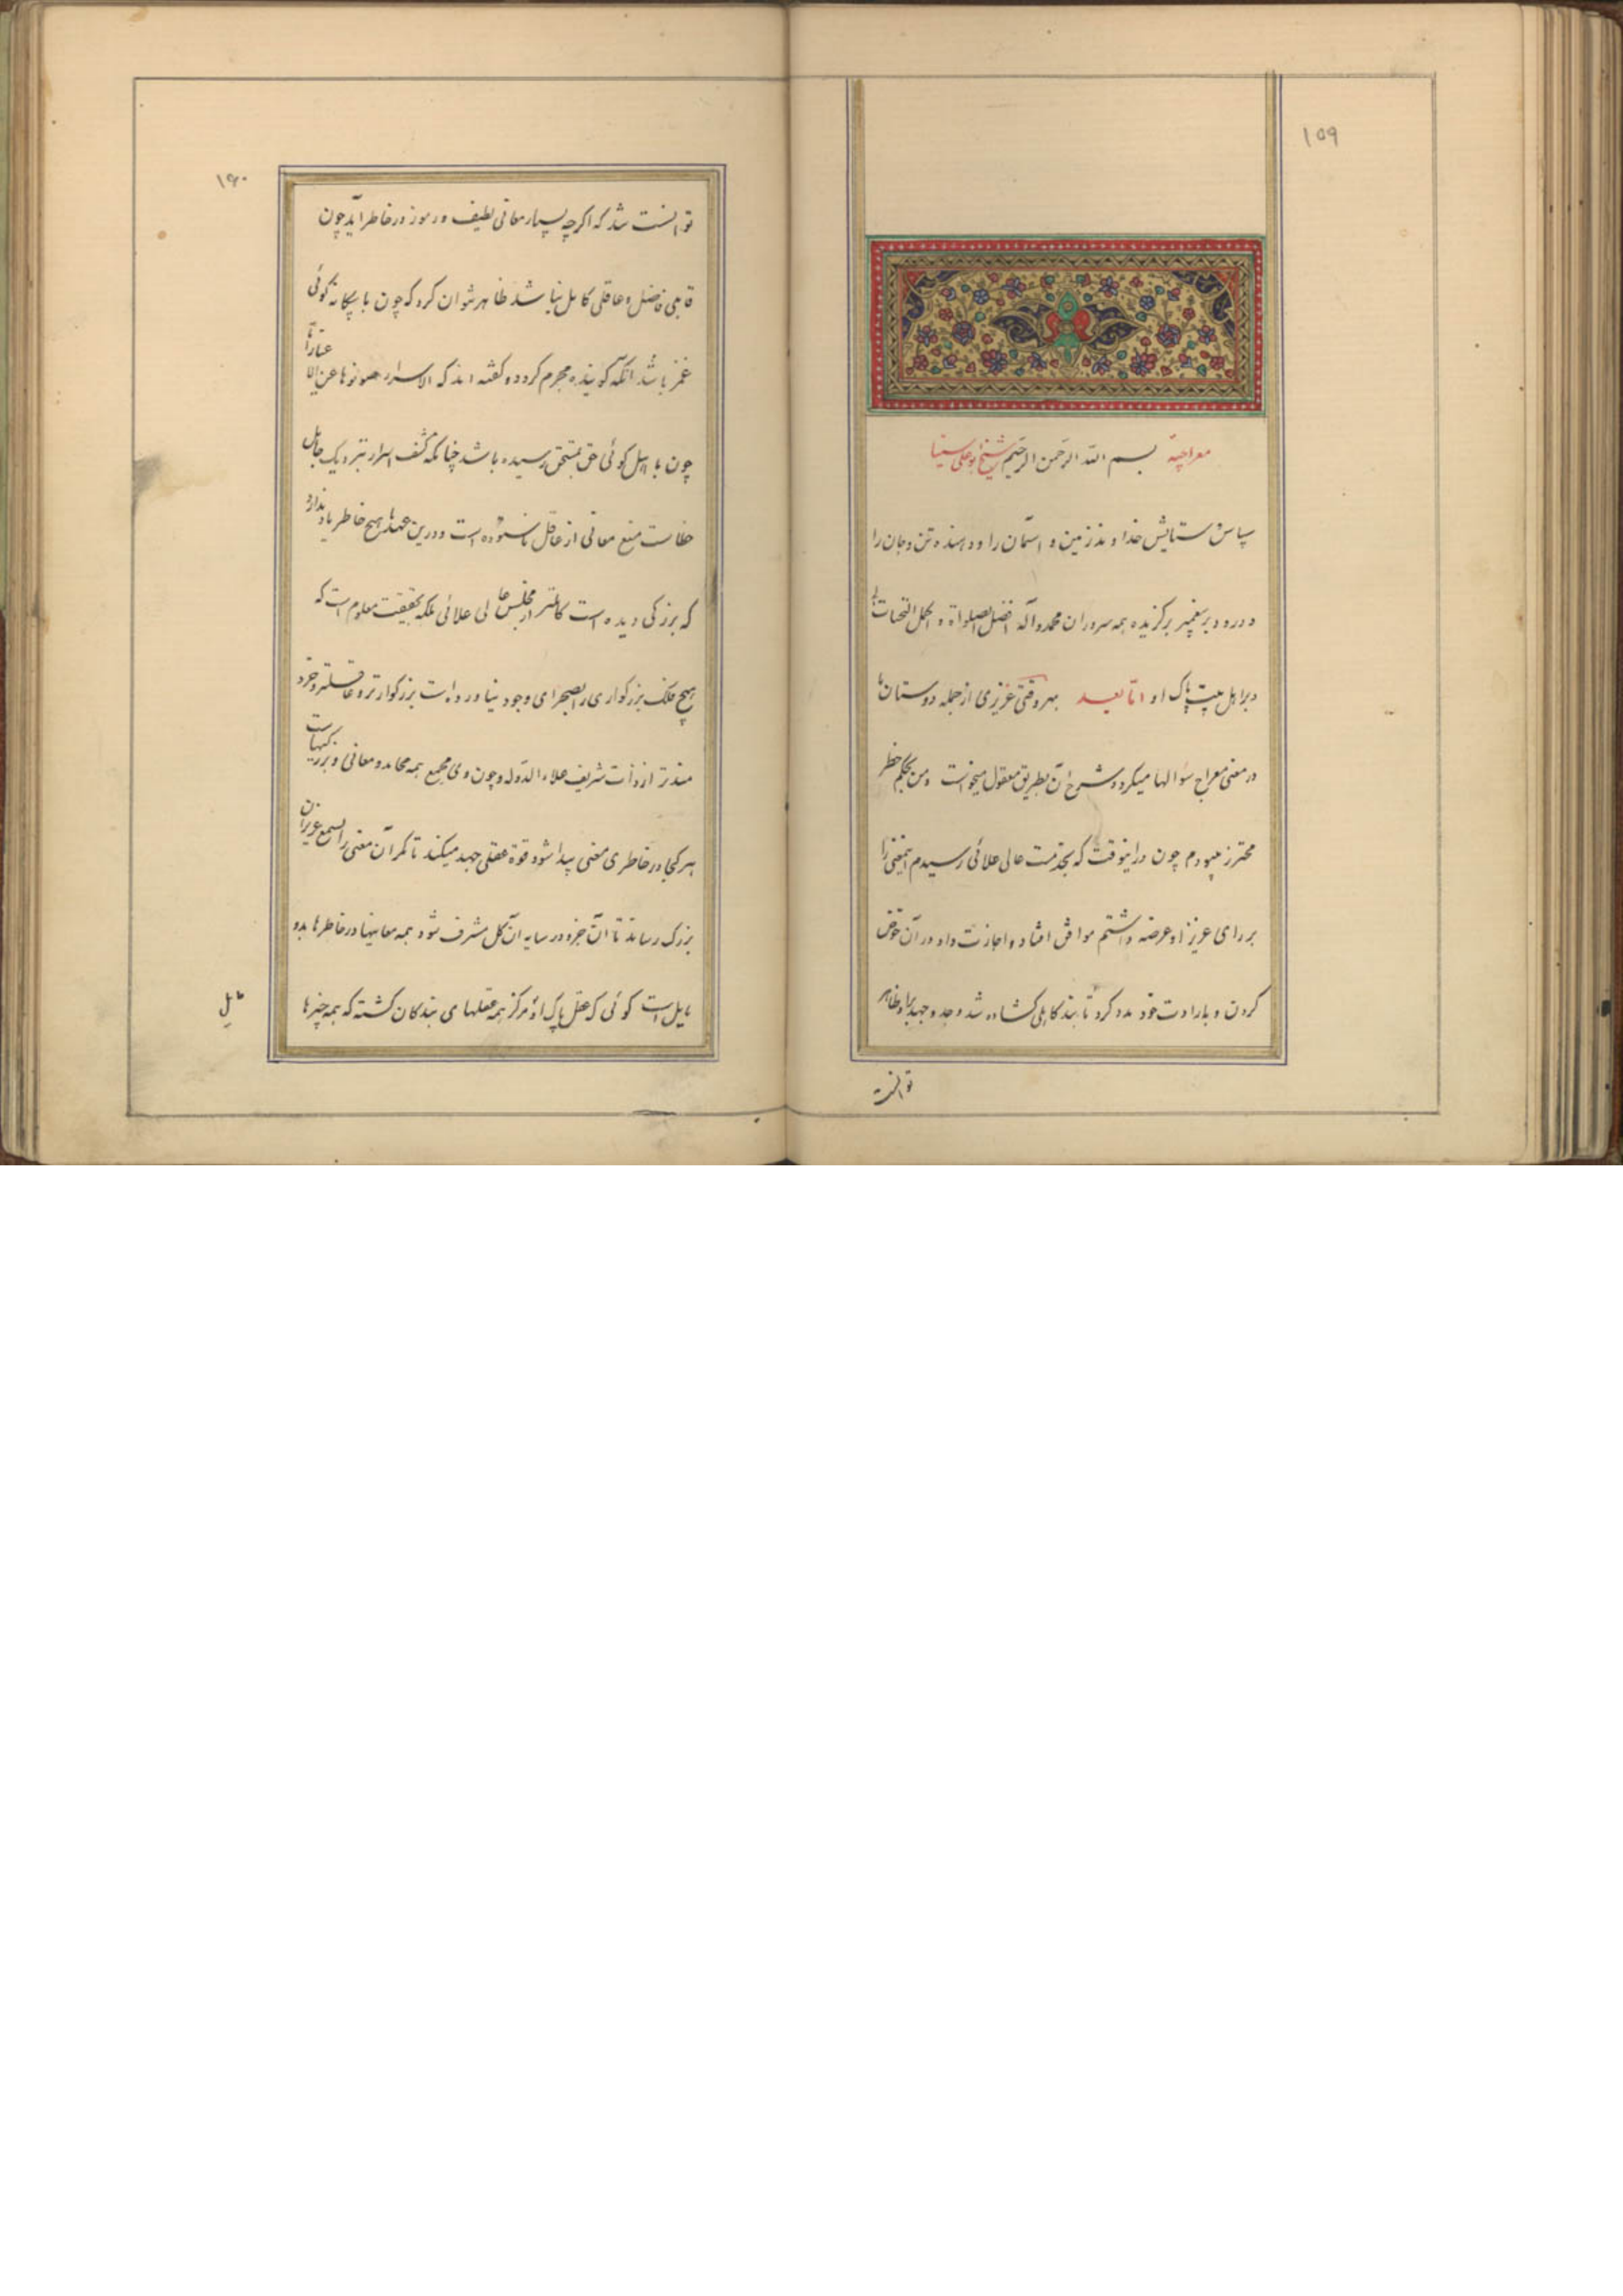 ۱۵۹
معراجیه بسم الله الرحمن الرحیم شیخ بوعلی سینا
سپاس و ستایش خداوند زمین و آسمان را و دهنده تن و جان را
و درود بر پیغمبر برگزیده همه سروران محمد و آله افضل الصلواة و اکمل التحیات
و بر اهل بیت پاک او اما بعد بهر وقتی عزیزی از جمله دوستان ما
در معنی معراج سؤالها میکرد و شرح آن بطریق معقول میخواست و من بحکم خطر
محترز میبودم چون در اینوقت که بخدمت عالی علائی رسیدم اینمعنی را
بر رای عزیز او عرضه داشتم موافق افتاد و اجازت داد در آن خوض
کردن و بارادت خود مدد کرد تا بند کاهلی گشاده شد و جد و جهد برا و ظاهر
توانست
۱۶۰
توانست شد که اگرچه بسیار معانی لطیف و رموز در خاطر آید چون
قابلی فاضل و عاقلی کامل نباشد ظاهر نتوان کرد که چون با بیگانه گوئی
غمز باشد آنگه گوینده مجرم گردد و گفته اند که الاسرار صونوها عن الا
چون با اهل گوئی حق بمستحق رسیده باشد چنانکه کشف اسرار بنزدیک جاهل
خطاست منع معانی از عاقل ناستوده است و درین عهدها هیچ خاطر یاد ندارد
که بزرگی دیده است کاملتر از مجلس عالی علائی بلکه بحقیقت معلوم است که
هیچ فلک بزرگواری را بصحرای وجود نیاورده است بزرگوارتر و عاقلتر و خرد
مندتر از ذات شریف علاء الدوله و چون وی مجمع همه محامد و معانی و بزرگیهاست
هر کجا در خاطری معنی پیدا شود قوة عقلی جهد میکند تا مگر آن معنی را بسمع عزیز آن
بزرگ رساند تا آن جزو در سایه آن کل مشرف شود همه معانیها در خاطرها بدو
مایل است گوئی که عقل پاک او مرکز همه عقلهای بندگان گشته که همه چیزها